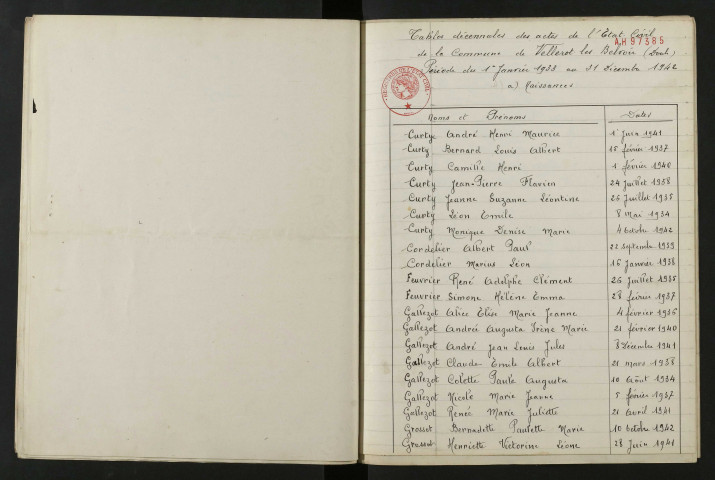 Tables décennales des actes de l'Etat Civil
AH 97385
de la Commune de Vellerot les Belvoir (Doubs)
Période du 1er Janvier 1933 au 31 Décembre 1942
a) Naissances
Noms et Prénoms Dates
Curty André Henri Maurice 1er Juin 1941
Curty Bernard Louis Albert 15 février 1937
Curty Camille Henri 1 février 1940
Curty Jean-Pierre Flavien 24 Juillet 1938
Curty Jeanne Suzanne Léontine 26 Juillet 1935
Curty Léon Emile 8 Mai 1934
Curty Monique Denise Marie 4 Octobre 1942
Cordelier Albert Paul 22 septembre 1939
Cordelier Marius Léon 16 Janvier 1938
Feuvrier René Adolphe Clément 26 Juillet 1935
Feuvrier Simone Hélène Emma 28 février 1937
Gallezot Alice Elise Marie Jeanne 4 février 1936
Gallezot Andrée Augusta Irène Marie 21 février 1940
Gallezot André Jean Louis Jules 8 Décembre 1941
Gallezot Claude Emile Albert 21 mars 1938
Gallezot Colette Paule Augusta 10 Août 1934
Gallezot Nicole Marie Jeanne 5 février 1937
Gallezot Renée Marie Juliette 21 Avril 1941
Grosset Bernadette Paulette Marie 10 Octobre 1942
Grosset Henriette Victorine Léone 28 Juin 1941